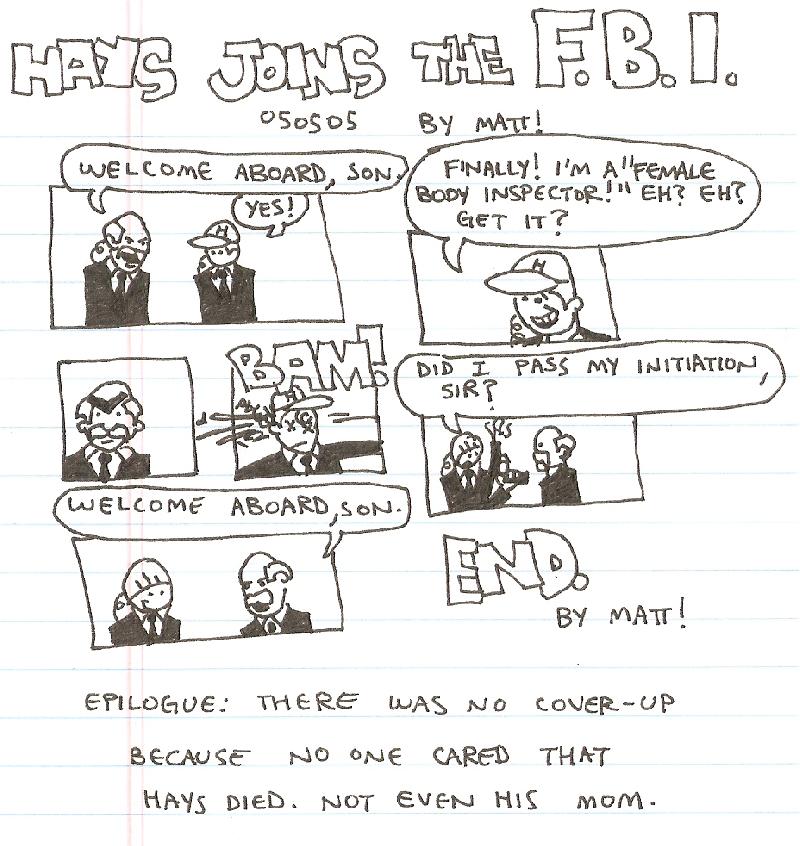 HAYS JOINS THE F.B.I.
050505 BY MATT!
WELCOME ABOARD, SON.
YES!
H
FINALLY! I'M A "FEMALE
BODY INSPECTOR!" EH? EH?
GET IT?
H
BAM!
H
DID I PASS MY INITIATION,
SIR?
WELCOME ABOARD, SON.
END.
BY MATT!
EPILOGUE: THERE WAS NO COVER-UP
BECAUSE NO ONE CARED THAT
HAYS DIED. NOT EVEN HIS MOM.